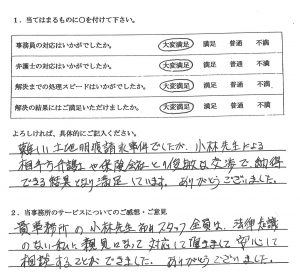 1．当てはまるものに○を付けて下さい。
事務員の対応はいかがでしたか。 大変満足 満足 普通 不満
弁護士の対応はいかがでしたか。 大変満足 満足 普通 不満
解決までの処理スピードはいかがでしたか。 大変満足 満足 普通 不満
解決の結果にはご満足いただけましたか。 大変満足 満足 普通 不満
よろしければ、具体的にご記入ください。
難しい土地明渡請求事件でしたが、小林先生による
相手方弁護士や保険会社との俊敏な交渉で、納得
できる結果となり満足しています。ありがとうございました。
2．当事務所のサービスについてのご感想・ご意見
貴事務所の小林先生、スタッフ全員は、法律知識
のない私に親身になって対応して頂きまして安心して
相談することができました。ありがとうございました。